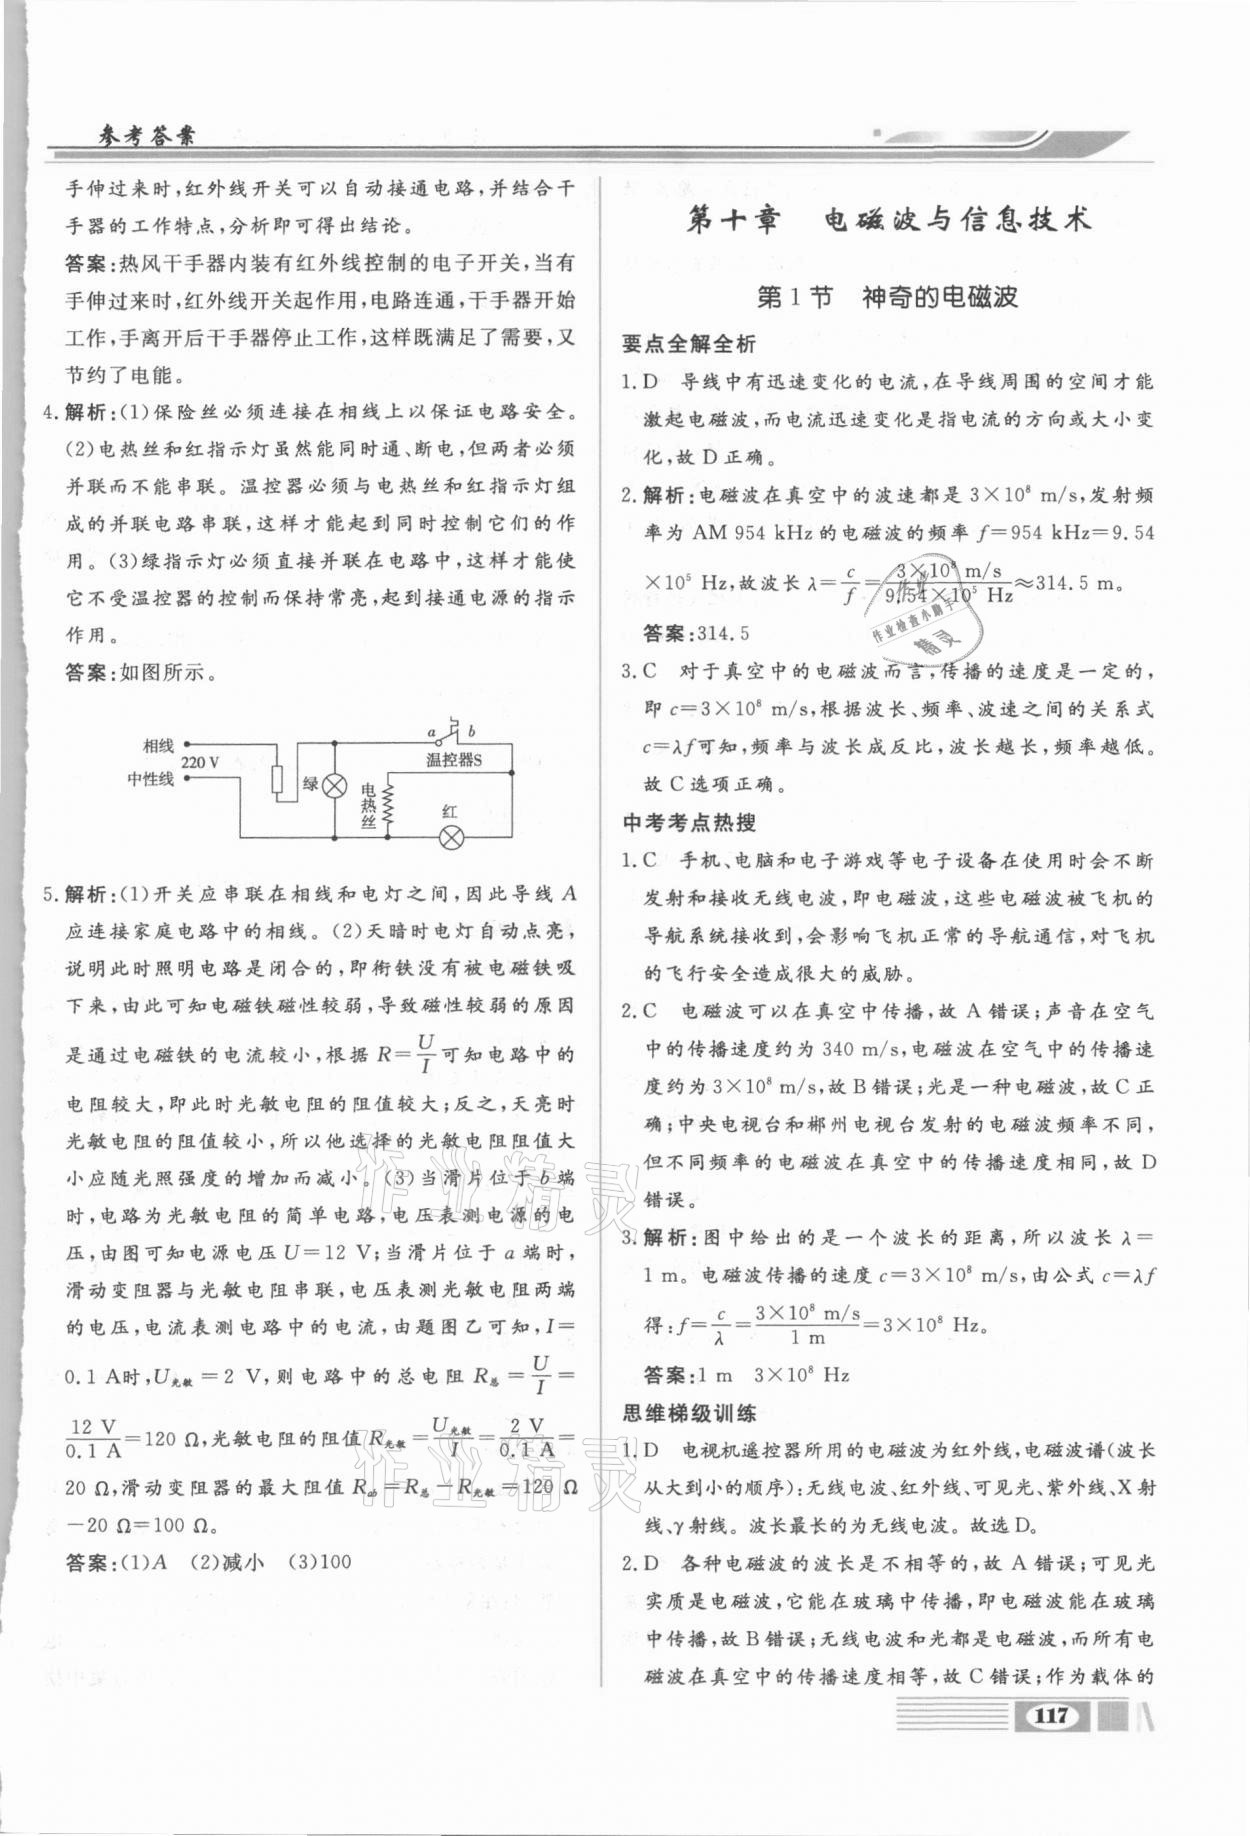 参考答案
手伸过来时,红外线开关可以自动接通电路,并结合干
手器的工作特点,分析即可得出结论。
答案:热风干手器内装有红外线控制的电子开关,当有
手伸过来时,红外线开关起作用,电路连通,干手器开始
工作,手离开后干手器停止工作,这样既满足了需要,又
节约了电能。
4. 解析:(1)保险丝必须连接在相线上以保证电路安全。
(2)电热丝和红指示灯虽然能同时通、断电,但两者必须
并联而不能串联。温控器必须与电热丝和红指示灯组
成的并联电路串联,这样才能起到同时控制它们的作
用。(3)绿指示灯必须直接并联在电路中,这样才能使
它不受温控器的控制而保持常亮,起到接通电源的指示
作用。
答案:如图所示。
a b
相线
220 V
温控器S
中性线
绿
电热丝
红
5. 解析:(1)开关应串联在相线和电灯之间,因此导线 A
应连接家庭电路中的相线。(2)天暗时电灯自动点亮,
说明此时照明电路是闭合的,即衔铁没有被电磁铁吸
下来,由此可知电磁铁磁性较弱,导致磁性较弱的原因
是通过电磁铁的电流较小,根据 R=U/I可知电路中的
电阻较大,即此时光敏电阻的阻值较大;反之,天亮时
光敏电阻的阻值较小,所以他选择的光敏电阻阻值大
小应随光照强度的增加而减小。(3)当滑片位于 b 端
时,电路为光敏电阻的简单电路,电压表测电源的电
压,由图可知电源电压 U=12 V;当滑片位于 a 端时,
滑动变阻器与光敏电阻串联,电压表测光敏电阻两端
的电压,电流表测电路中的电流,由题图乙可知,I=
0.1 A时,U光敏=2 V,则电路中的总电阻 R总=U/I=
12 V/0.1 A=120 Ω,光敏电阻的阻值 R光敏=U光敏/I=2 V/0.1 A=
20 Ω,滑动变阻器的最大阻值 R动=R总-R光敏=120 Ω
-20 Ω=100 Ω。
答案:(1)A (2)减小 (3)100
第十章 电磁波与信息技术
第 1 节 神奇的电磁波
要点全解全析
1. D 导线中有迅速变化的电流,在导线周围的空间才能
激起电磁波,而电流迅速变化是指电流的方向或大小变
化,故 D 正确。
2. 解析:电磁波在真空中的波速都是 3×10⁸ m/s,发射频
率为 AM 954 kHz 的电磁波的频率 f=954 kHz=9.54
×10⁵ Hz,故波长 λ=c/f=3×10⁸ m/s/9.54×10⁵ Hz≈314.5 m。
答案:314.5
3. C 对于真空中的电磁波而言,传播的速度是一定的,
即 c=3×10⁸ m/s,根据波长、频率、波速之间的关系式
c=λf可知,频率与波长成反比,波长越长,频率越低。
故 C 选项正确。
中考考点热搜
1. C 手机、电脑和电子游戏等电子设备在使用时会不断
发射和接收无线电波,即电磁波,这些电磁波被飞机的
导航系统接收到,会影响飞机正常的导航通信,对飞机
的飞行安全造成很大的威胁。
2. C 电磁波可以在真空中传播,故 A 错误;声音在空气
中的传播速度约为 340 m/s,电磁波在空气中的传播速
度约为 3×10⁸ m/s,故 B 错误;光是一种电磁波,故 C 正
确;中央电视台和郴州电视台发射的电磁波频率不同,
但不同频率的电磁波在真空中的传播速度相同,故 D
错误。
3. 解析:图中给出的是一个波长的距离,所以波长 λ=
1 m。电磁波传播的速度 c=3×10⁸ m/s,由公式 c=λf
得:f=c/λ=3×10⁸ m/s/1 m=3×10⁸ Hz。
答案:1 m 3×10⁸ Hz
思维梯级训练
1. D 电视机遥控器所用的电磁波为红外线,电磁波谱(波长
从大到小的顺序):无线电波、红外线、可见光、紫外线、X 射
线、γ射线。波长最长的为无线电波。故选 D。
2. D 各种电磁波的波长是不相等的,故 A 错误;可见光
实质是电磁波,它能在玻璃中传播,即电磁波能在玻璃
中传播,故 B 错误;无线电波和光都是电磁波,而所有电
磁波在真空中的传播速度相等,故 C 错误;作为载体的
117
作业精灵
作业精灵
作业检查小助手
精灵